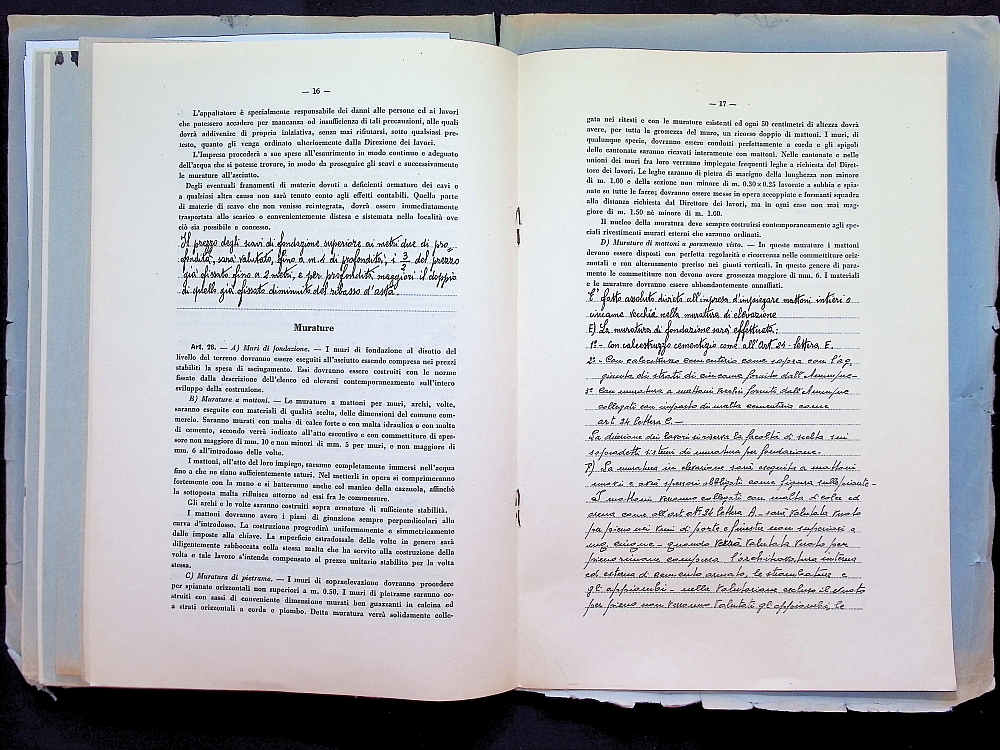 — 16 —
L'appaltatore è specialmente responsabile dei danni alle persone ed ai lavori
che potessero accadere per mancanza od insufficienza di tali precauzioni, alle quali
dovrà addivenire di propria iniziativa, senza mai rifiutarsi, sotto qualsiasi pre-
testo, quanto gli venga ordinato ulteriormente dalla Direzione dei lavori.
L'Impresa procederà a sue spese all'esaurimento in modo continuo e adeguato
dell'acqua che si potesse trovare, in modo da proseguire gli scavi e successivamente
le murature all'asciutto.
Degli eventuali franamenti di materie dovuti a deficienti armature dei cavi e
a qualsiasi altra causa non sarà tenuto conto agli effetti contabili. Quella parte
di materie di scavo che non venisse reintegrata, dovrà essere immediatamente
trasportata allo scarico o convenientemente distesa e sistemata nella località ove
ciò sia possibile e concesso.
Il prezzo degli scavi di fondazione superiore ai metri due di pro=
fondità, sarà valutato, fino a m. 4 di profondità, i 3/2 del prezzo
già fissato fino a 2 metri, e per profondità maggiori il doppio
di quello già fissato diminuito del ribasso d'asta.
Murature
Art. 26. — A) Muri di fondazione. — I muri di fondazione al disotto del
livello del terreno dovranno essere eseguiti all'asciutto essendo compresa nei prezzi
stabiliti la spesa di asciugamento. Essi dovranno essere costruiti con le norme
fissate dalla descrizione dell'elenco ed elevarsi contemporaneamente sull'intero
sviluppo della costruzione.
B) Murature a mattoni. — Le murature a mattoni per muri, archi, volte,
saranno eseguite con materiali di qualità scelta, delle dimensioni del comune com-
mercio. Saranno murati con malta di calce forte o con malta idraulica o con malta
di cemento, secondo verrà indicato all'atto esecutivo e con commettiture di spes-
sore non maggiore di mm. 10 e non minori di mm. 5 per muri, e non maggiore di
mm. 6 all'introdosso delle volte.
I mattoni, all'atto del loro impiego, saranno completamente immersi nell'acqua
fino a che ne siano sufficientemente saturi. Nel metterli in opera si comprimeranno
fortemente con la mano e si batteranno anche col manico della cazzuola, affinchè
la sottoposta malta rifluisca attorno ad essi fra le commessure.
Gli archi e le volte saranno costruiti sopra armature di sufficiente stabilità.
I mattoni dovranno avere i piani di giunzione sempre perpendicolari alla
curva d'introdosso. La costruzione progredirà uniformemente e simmetricamente
dalle imposte alla chiave. La superficie estradossale delle volte in genere sarà
diligentemente rabboccata colla stessa malta che ha servito alla costruzione della
volta e tale lavoro s'intende compensato al prezzo unitario stabilito per la volta
stessa.
C) Muratura di pietrame. — I muri di sopraelevazione dovranno procedere
per spianate orizzontali non superiori a m. 0.50. I muri di pietrame saranno co-
struiti con sassi di conveniente dimensione murati ben guazzanti in calcina ed
a strati orizzontali a corda e piombo. Detta muratura verrà solidamente colle-
— 17 —
gata nei ritesti e con le murature esistenti ed ogni 50 centimetri di altezza dovrà
avere, per tutta la grossezza del muro, un ricorso doppio di mattoni. I muri, di
qualunque specie, dovranno essere condotti perfettamente a corda e gli spigoli
delle cantonate saranno ricavati interamente con mattoni. Nelle cantonate e nelle
unioni dei muri fra loro verranno impiegate frequenti leghe a richiesta del Diret-
tore dei lavori. Le leghe saranno di pietra di macigno della lunghezza non minore
di m. 1.00 e della sezione non minore di m. 0.30×0.25 lavorate a subbia e spia-
nate su tutte le facce; dovranno essere messe in opera accoppiate e formanti squadra
alla distanza richiesta dal Direttore dei lavori, ma in ogni caso non mag-
giore di m. 1.50 nè minore di m. 1.00.
Il nucleo della muratura deve sempre costruirsi contemporaneamente agli spe-
ciali rivestimenti murari esterni che saranno ordinati.
D) Murature di mattoni a paramento visto. — In queste murature i mattoni
devono essere disposti con perfetta regolarità e ricorrenza nelle commettiture oriz-
zontali e con alternamento preciso nei giunti verticali. In questo genere di para-
mento le commettiture non devono avere grossezza maggiore di mm. 6. I materiali
e le murature dovranno essere abbondantemente annaffiati.
E' fatto assoluto divieto all'impresa d'impiegare mattoni intieri o
cincame vecchia nella muratura di elevazione
E) La muratura di fondazione sarà effettuata:
1°- con calcestruzzo cementizio come all'Art. 24 - lettera E.
2°- Con calcestruzzo cementizio come sopra con l'ag
giunta di strati di cincame fornito dall'Amm/ne-
3°- Con muratura a mattoni vecchi forniti dall'Amm/ne
collegati con impasto di malta cementizia come
art. 24 lettera C. —
La direzione dei lavori si riserva la facoltà di scelta sui
sopradetti sistemi di muratura per fondazione.
F) La muratura in elevazione sarà eseguita a mattoni
nuovi e dagli spessori obbligati come figura sulle piante -
I mattoni verranno collegati con malta di calce ed
arena come all'art. N. 24 lettera A. - sarà valutata vuoto
per pieno nei vani di porte e finestre non superiori a
mq. cinque - quando verrà valutata vuoto per
pieno rimane compresa l'architravatura interna
ed esterna di cemento armato, le strombature e
gli appiombi - nella valutazione escluso il vuoto
per pieno non verranno valutati gli appiombi, le